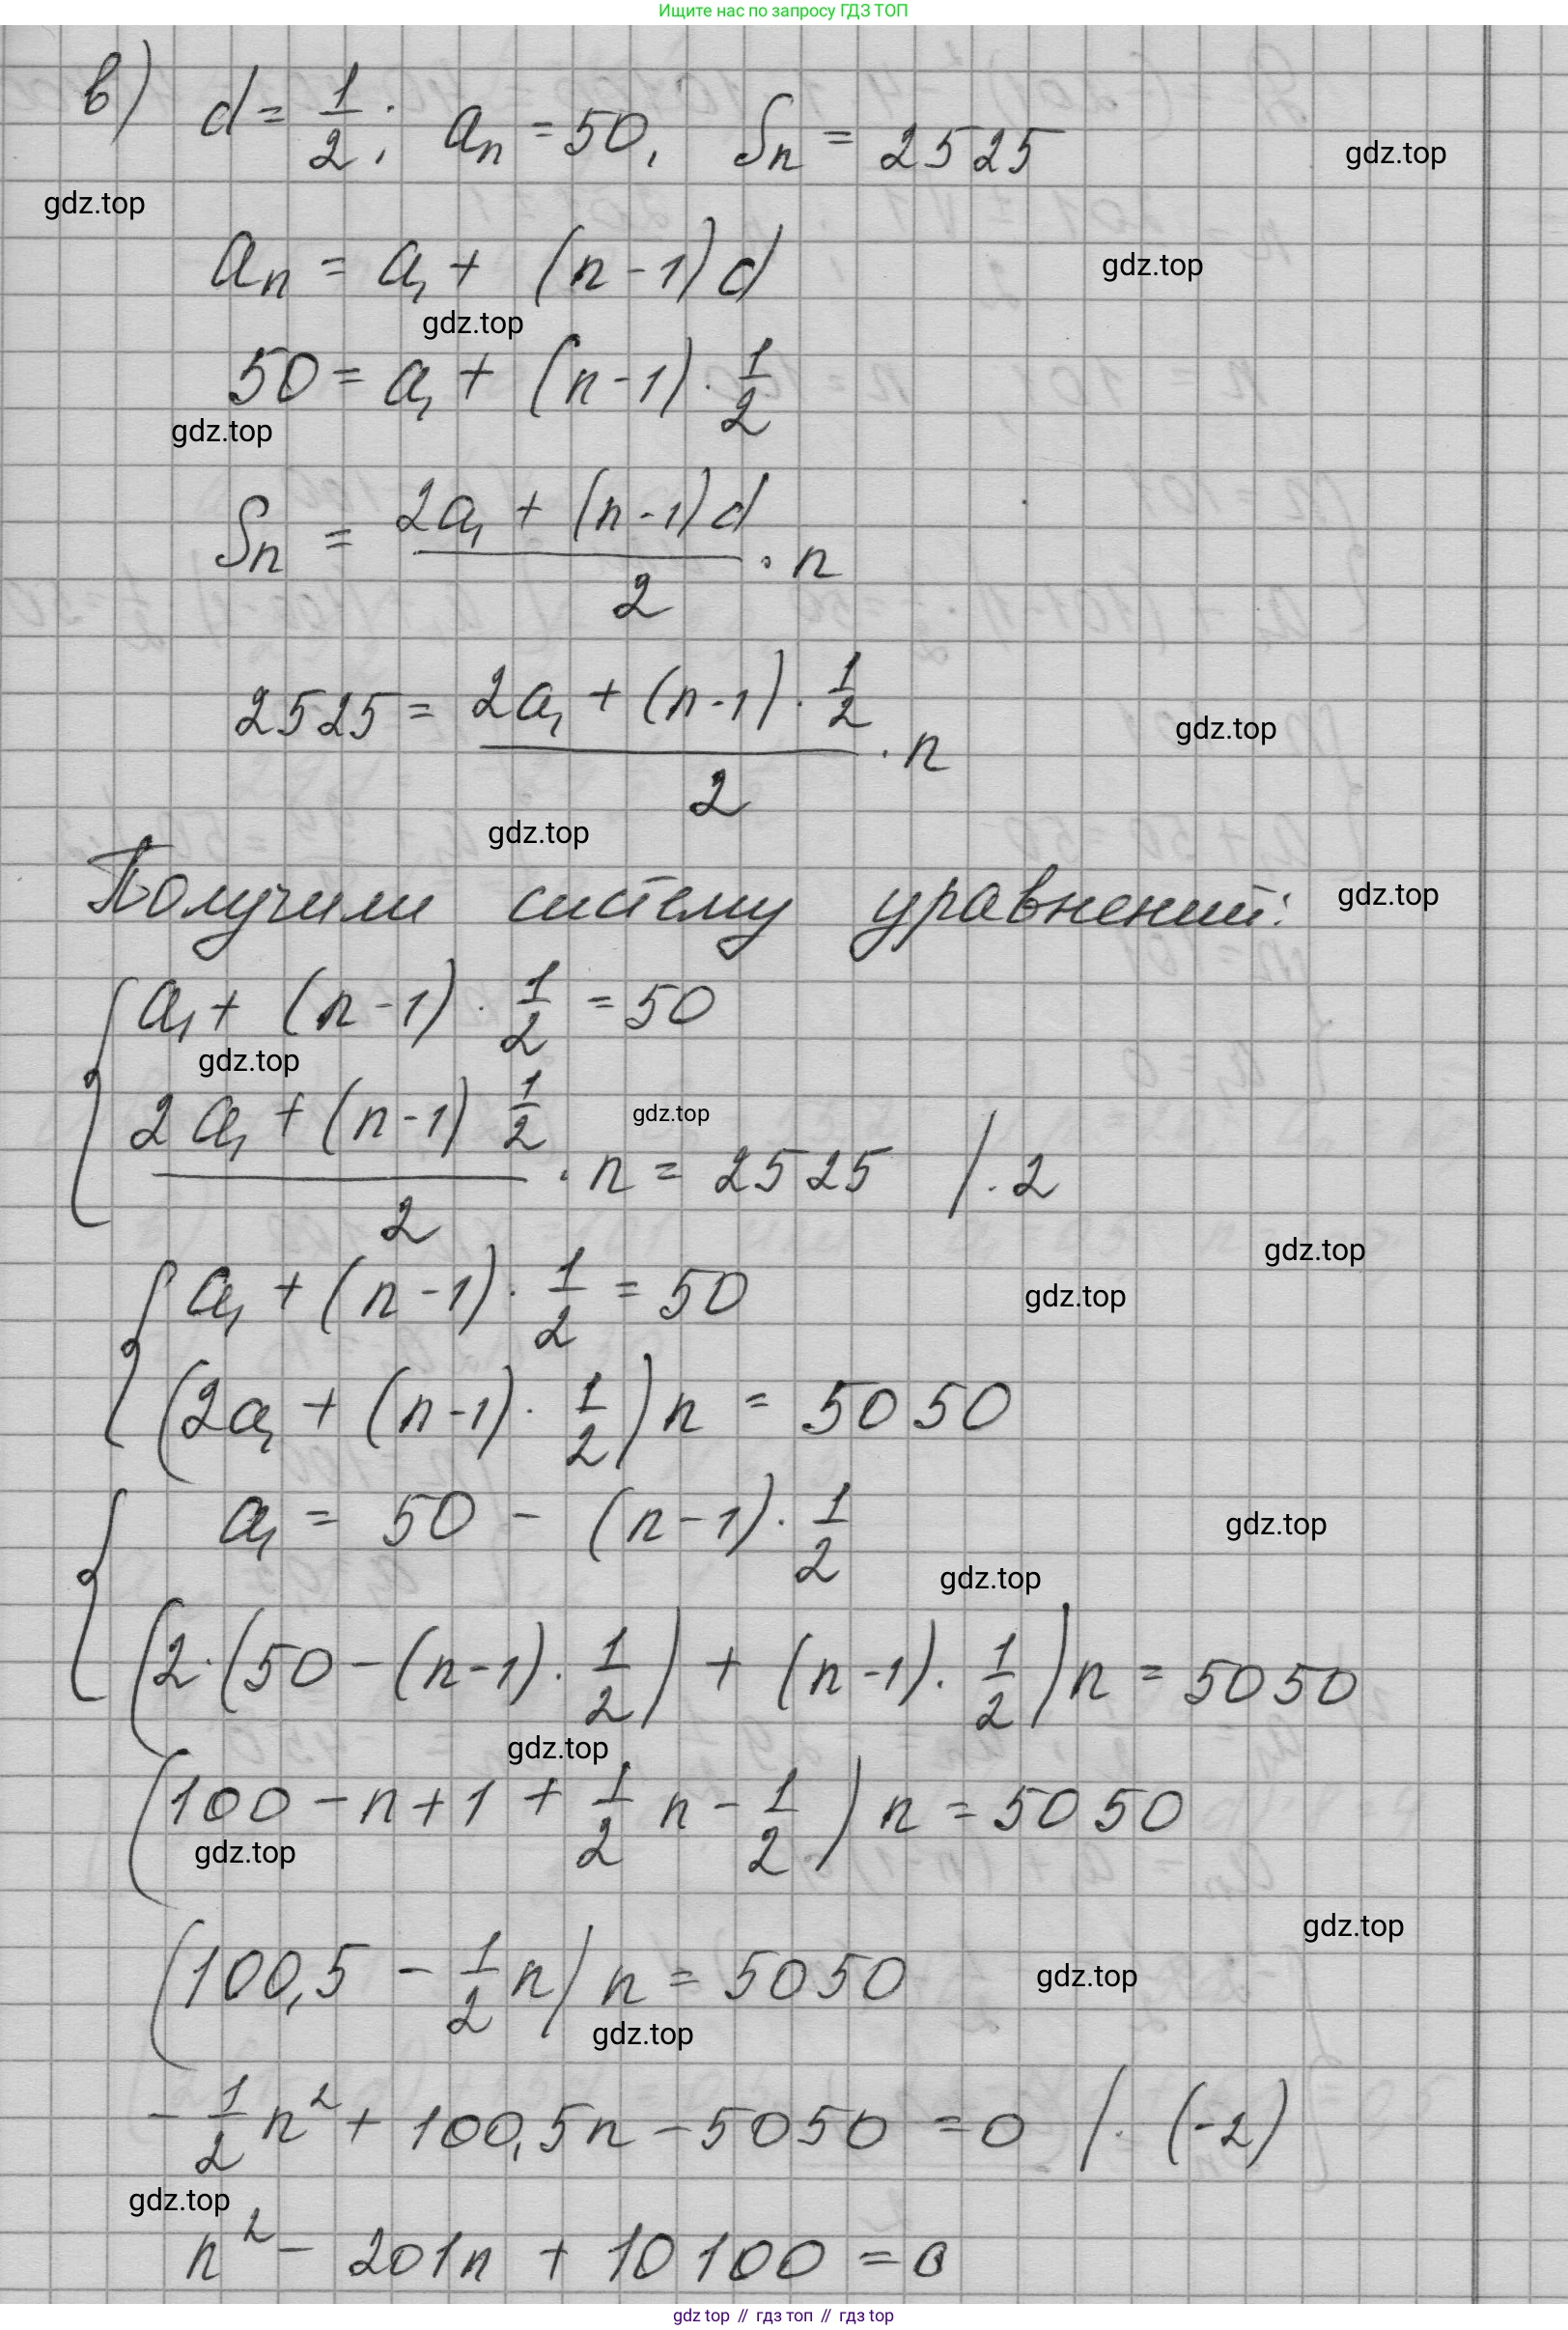 Ищите нас по запросу ГДЗ ТОП
в) d = 1/2; aₙ = 50, Sₙ = 2525
gdz.top
gdz.top
aₙ = a₁ + (n-1)d
gdz.top
gdz.top
50 = a₁ + (n-1) · 1/2
gdz.top
Sₙ = (2a₁ + (n-1)d)/2 · n
2525 = (2a₁ + (n-1) · 1/2)/2 · n
gdz.top
gdz.top
Получим систему уравнений:
gdz.top
{ a₁ + (n-1) · 1/2 = 50
gdz.top
(2a₁ + (n-1) 1/2)/2 · n = 2525 / · 2
gdz.top
gdz.top
{ a₁ + (n-1) · 1/2 = 50
gdz.top
(2a₁ + (n-1) · 1/2) n = 5050
{ a₁ = 50 - (n-1) · 1/2
gdz.top
gdz.top
(2·(50 - (n-1) · 1/2) + (n-1) · 1/2) n = 5050
gdz.top
(100 - n + 1 + 1/2 n - 1/2) n = 5050
gdz.top
gdz.top
(100,5 - 1/2 n) n = 5050
gdz.top
gdz.top
- 1/2 n² + 100,5n - 5050 = 0 / · (-2)
gdz.top
n² - 201n + 10100 = 0
gdz top // гдз топ // гдз top